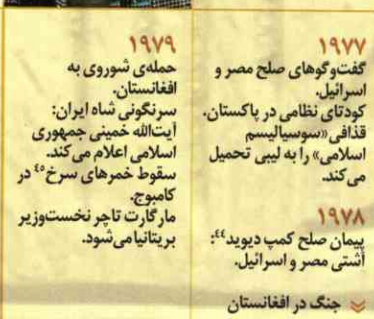 ۱۹۷۷
گفت‌وگوهای صلح مصر و
اسرائیل.
کودتای نظامی در پاکستان.
قذافی «سوسیالیسم
اسلامی» را به لیبی تحمیل
می‌کند.
۱۹۷۸
پیمان صلح کمپ دیوید۴۴:
آشتی مصر و اسرائیل.
جنگ در افغانستان
۱۹۷۹
حمله‌ی شوروی به
افغانستان.
سرنگونی شاه ایران:
آیت‌الله خمینی جمهوری
اسلامی اعلام می‌کند.
سقوط خمرهای سرخ۴۵ در
کامبوج.
مارگارت تاچر نخست‌وزیر
بریتانیا می‌شود.